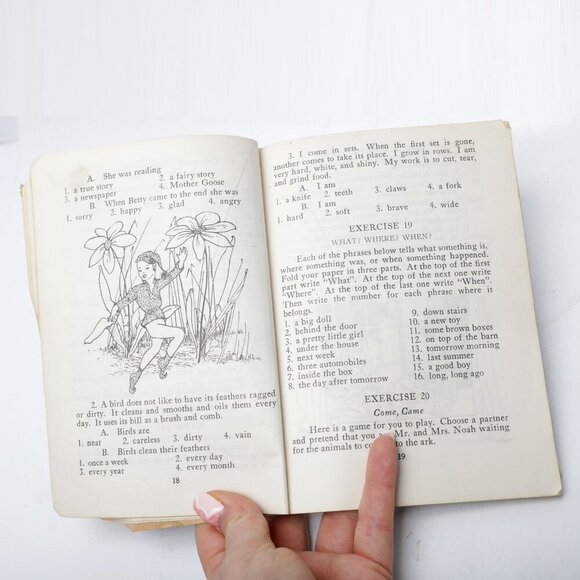 A. She was reading
1. a true story 2. a fairy story
3. a newspaper 4. Mother Goose
B. When Betty came to the end she was
1. sorry 2. happy 3. glad 4. angry
2. A bird does not like to have its feathers ragged
or dirty. It cleans and smooths and oils them every
day. It uses its bill as a brush and comb.
A. Birds are
1. neat 2. careless 3. dirty 4. vain
B. Birds clean their feathers
1. once a week 2. every day
3. every year 4. every month
18
3. I come in sets. When the first set is gone,
another comes to take its place. I grow in rows. I am
very hard, white, and shiny. My work is to cut, tear,
and grind food.
A. I am
1. a knife 2. teeth 3. claws 4. a fork
B. I am
1. hard 2. soft 3. brave 4. wide
EXERCISE 19
WHAT? WHERE? WHEN?
Each of the phrases below tells what something is,
where something was, or when something happened.
Fold your paper in three parts. At the top of the first
part write "What". At the top of the next one write
"Where". At the top of the last one write "When".
Then write the number for each phrase where it
belongs.
1. a big doll
2. behind the door
3. a pretty little girl
4. under the house
5. next week
6. three automobiles
7. inside the box
8. the day after tomorrow
9. down stairs
10. a new toy
11. some brown boxes
12. on top of the barn
13. tomorrow morning
14. last summer
15. a good boy
16. long, long ago
EXERCISE 20
Come, Came
Here is a game for you to play. Choose a partner
and pretend that you Mr. and Mrs. Noah waiting
for the animals to to the ark.
19